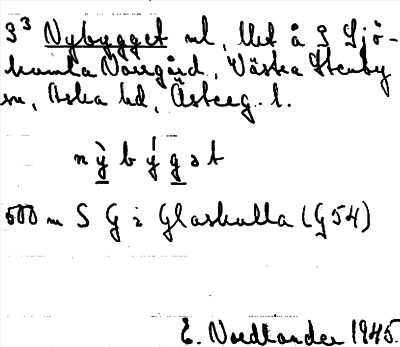 S³ Nybygget ml, lht å S Sjö-
kumla Norrgård, Västra Stenby
sn, Aska hd, Österg. l.
nỳbýgət
500 m S G i Glaskulla (G 54)
E. Nordlander 1945.